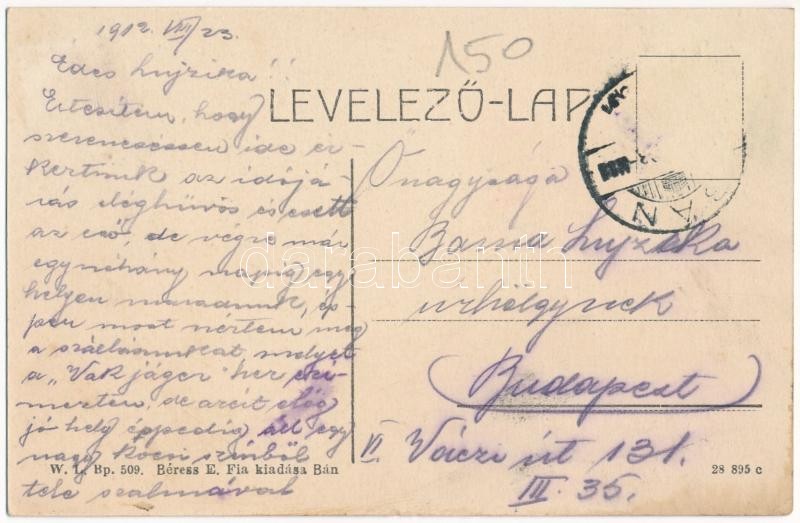 1912. VIII/23.
150
Édes Lujzika!!
LEVELEZŐ-LAP
Értesítem, hogy
szerencséssen ide ér-
keztünk az időjá-
rás elég hüvös és esett
az eső, de végre már
egynéhány napig egy
helyen maradunk, ép-
pen most néztem meg
a szállásunkat, melyet
a „Vak jäger" hez
de azért elég
jó hely éppedig áll egy
nagy kocsi színből
tele szalmával
BÁN
Őnagysága
Bassa Lujzika
úrhölgynek
Budapest
VI Váczi út 131.
III. 35.
W. L. Bp. 509. Béress E. Fia kiadása Bán
28 895 c
darabanth